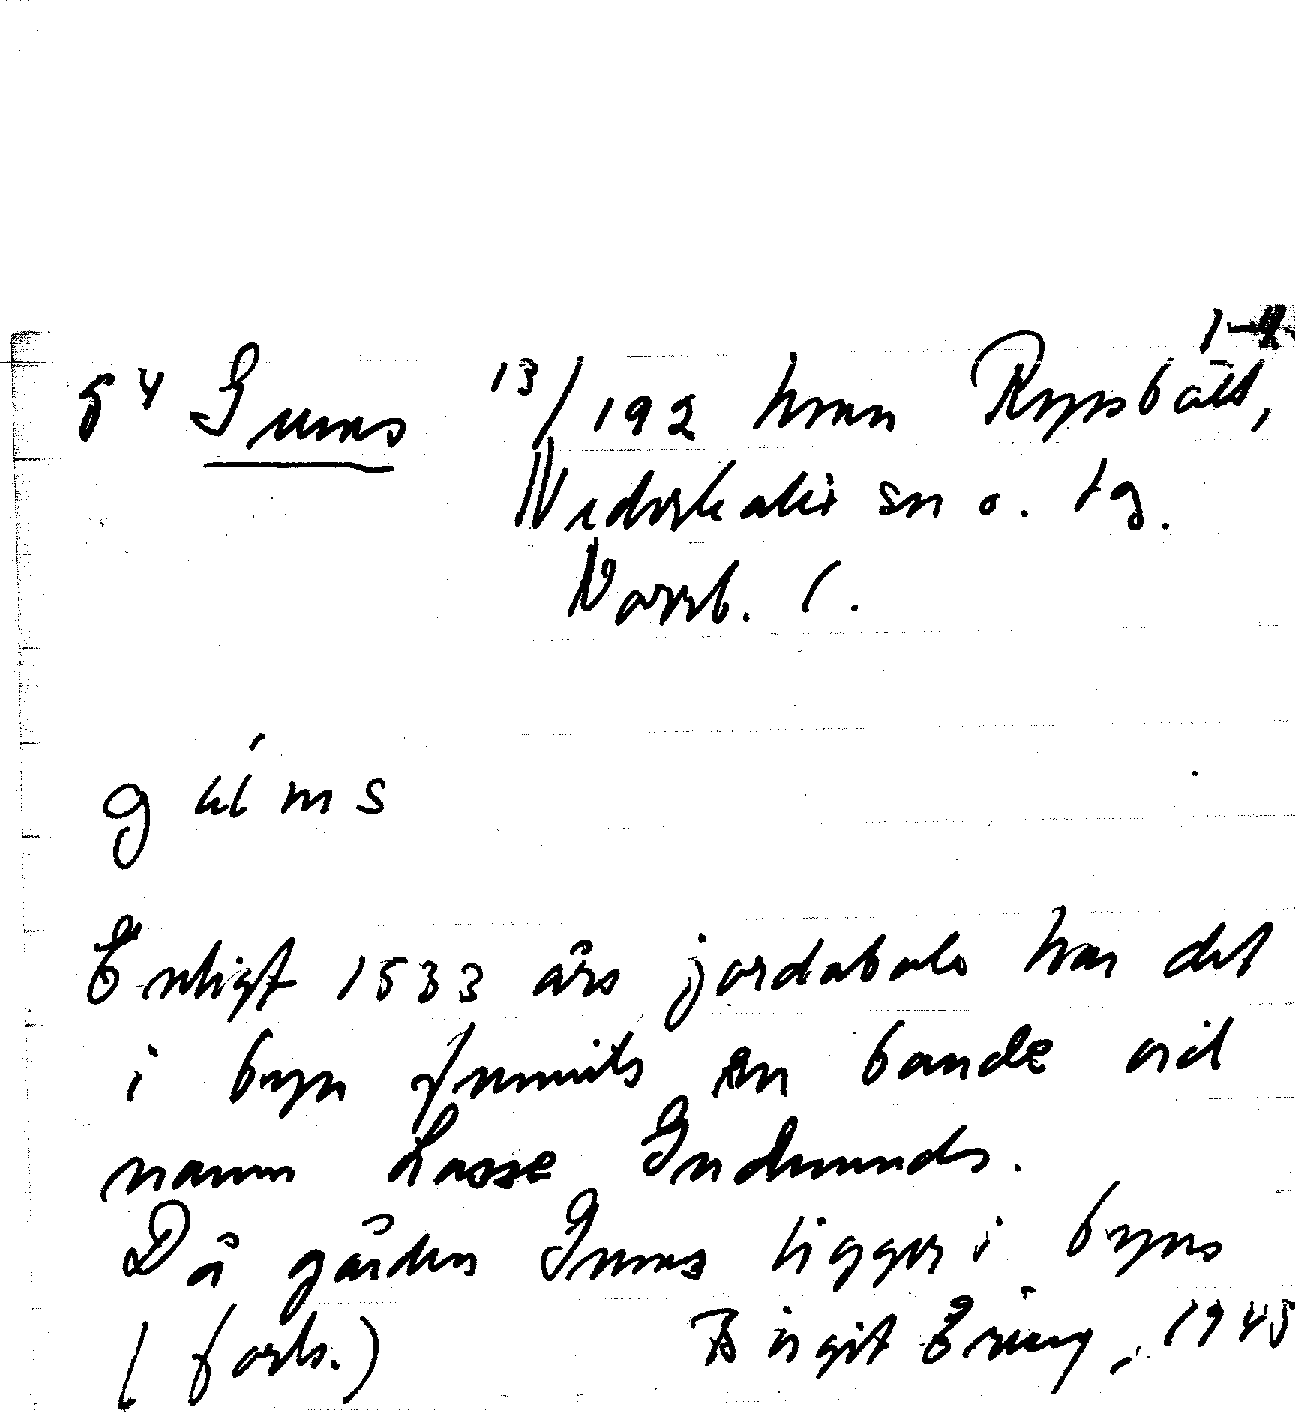 1-4
§ 4 Gums 13/192 hmn Rynsbält,
Nederkalix sn o. tg.
Norrb. l.
g ú m s
Enligt 1533 års jordabok har det
i byn funnits en bonde vid
namn Lasse Gudmunds.
Då gården Gums ligger i byns
(forts.) Birgit Ering, 1945